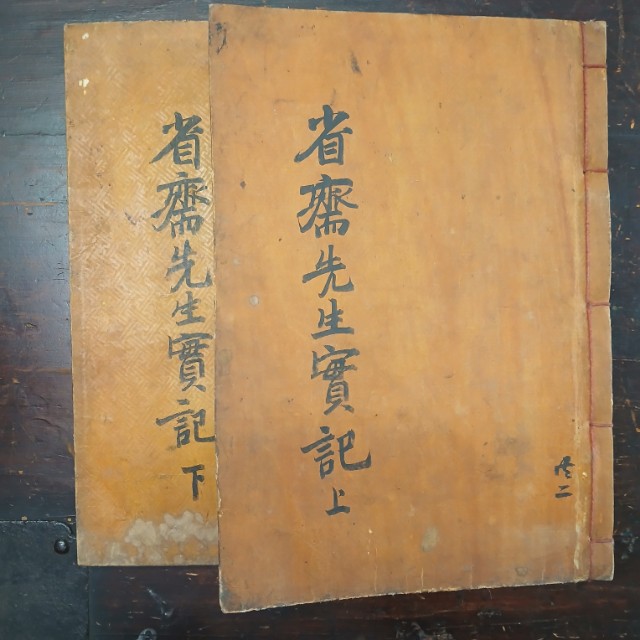 共二
省齋先生實記 上
省齋先生實記 下